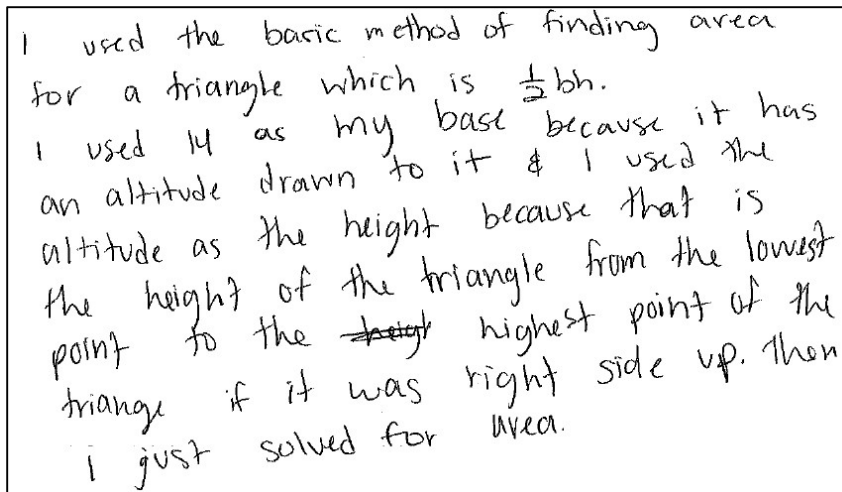 I used the basic method of finding area
for a triangle which is 1/2 bh.
I used 14 as my base because it has
an altitude drawn to it & I used the
altitude as the height because that is
the height of the triangle from the lowest
point to the heigt highest point of the
triange if it was right side up. Then
I just solved for area.